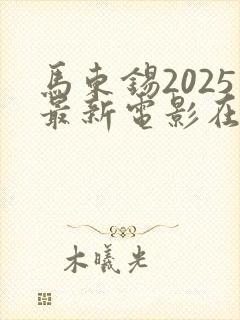 馬東錫2025
最新電影在
木曦光